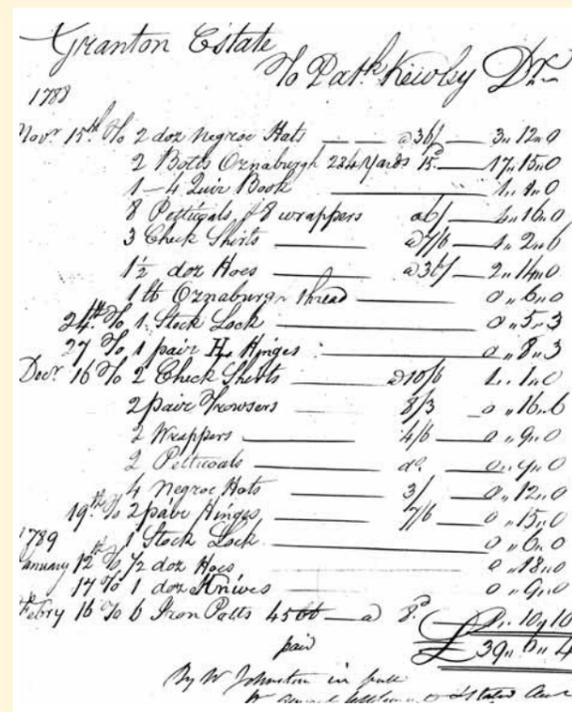 Granton Estate
To Patk. Kewley Dr.
1788
Novr. 15th To 2 doz Negroe Hats @ 36/ 3,, 12,, 0
2 Botts Oznaburgh 284 Yards 15d. 17,, 15,, 0
1 - 4 Quir Book
8 Petticoats, & 8 wrappers a6/ 16,, 0
3 Check Shirts @ 7/6 1,, 2,, 6
1½ doz Hoes @ 36/ 2,, 14,, 0
1 lb Oznaburgh thread 0,, 6,, 0
24th. To 1 Stock Lock 0,, 5,, 3
27 To 1 pair HL Hinges 0,, 8,, 3
Decr. 16 To 2 Check Shirts @ 10/6 1,, 1,, 0
2 pair Trowsers 8/3 0,, 16,, 6
2 Wrappers 4/6 0,, 9,, 0
2 Petticoats do. 0,, 9,, 0
4 Negroe Hats 3/ 0,, 12,, 0
19th. To 2 pair Hinges 7/6 0,, 15,, 0
1789 1 Stock Lock 0,, 6,, 0
January 12th To ½ doz Hoes 0,, 18,, 0
14 To 1 doz Knives 0,, 9,, 0
Febry 16 To 6 Iron Potts 45 lb a 8d. 10,, 10
paid £ 39,, 4
By W Johnston in full